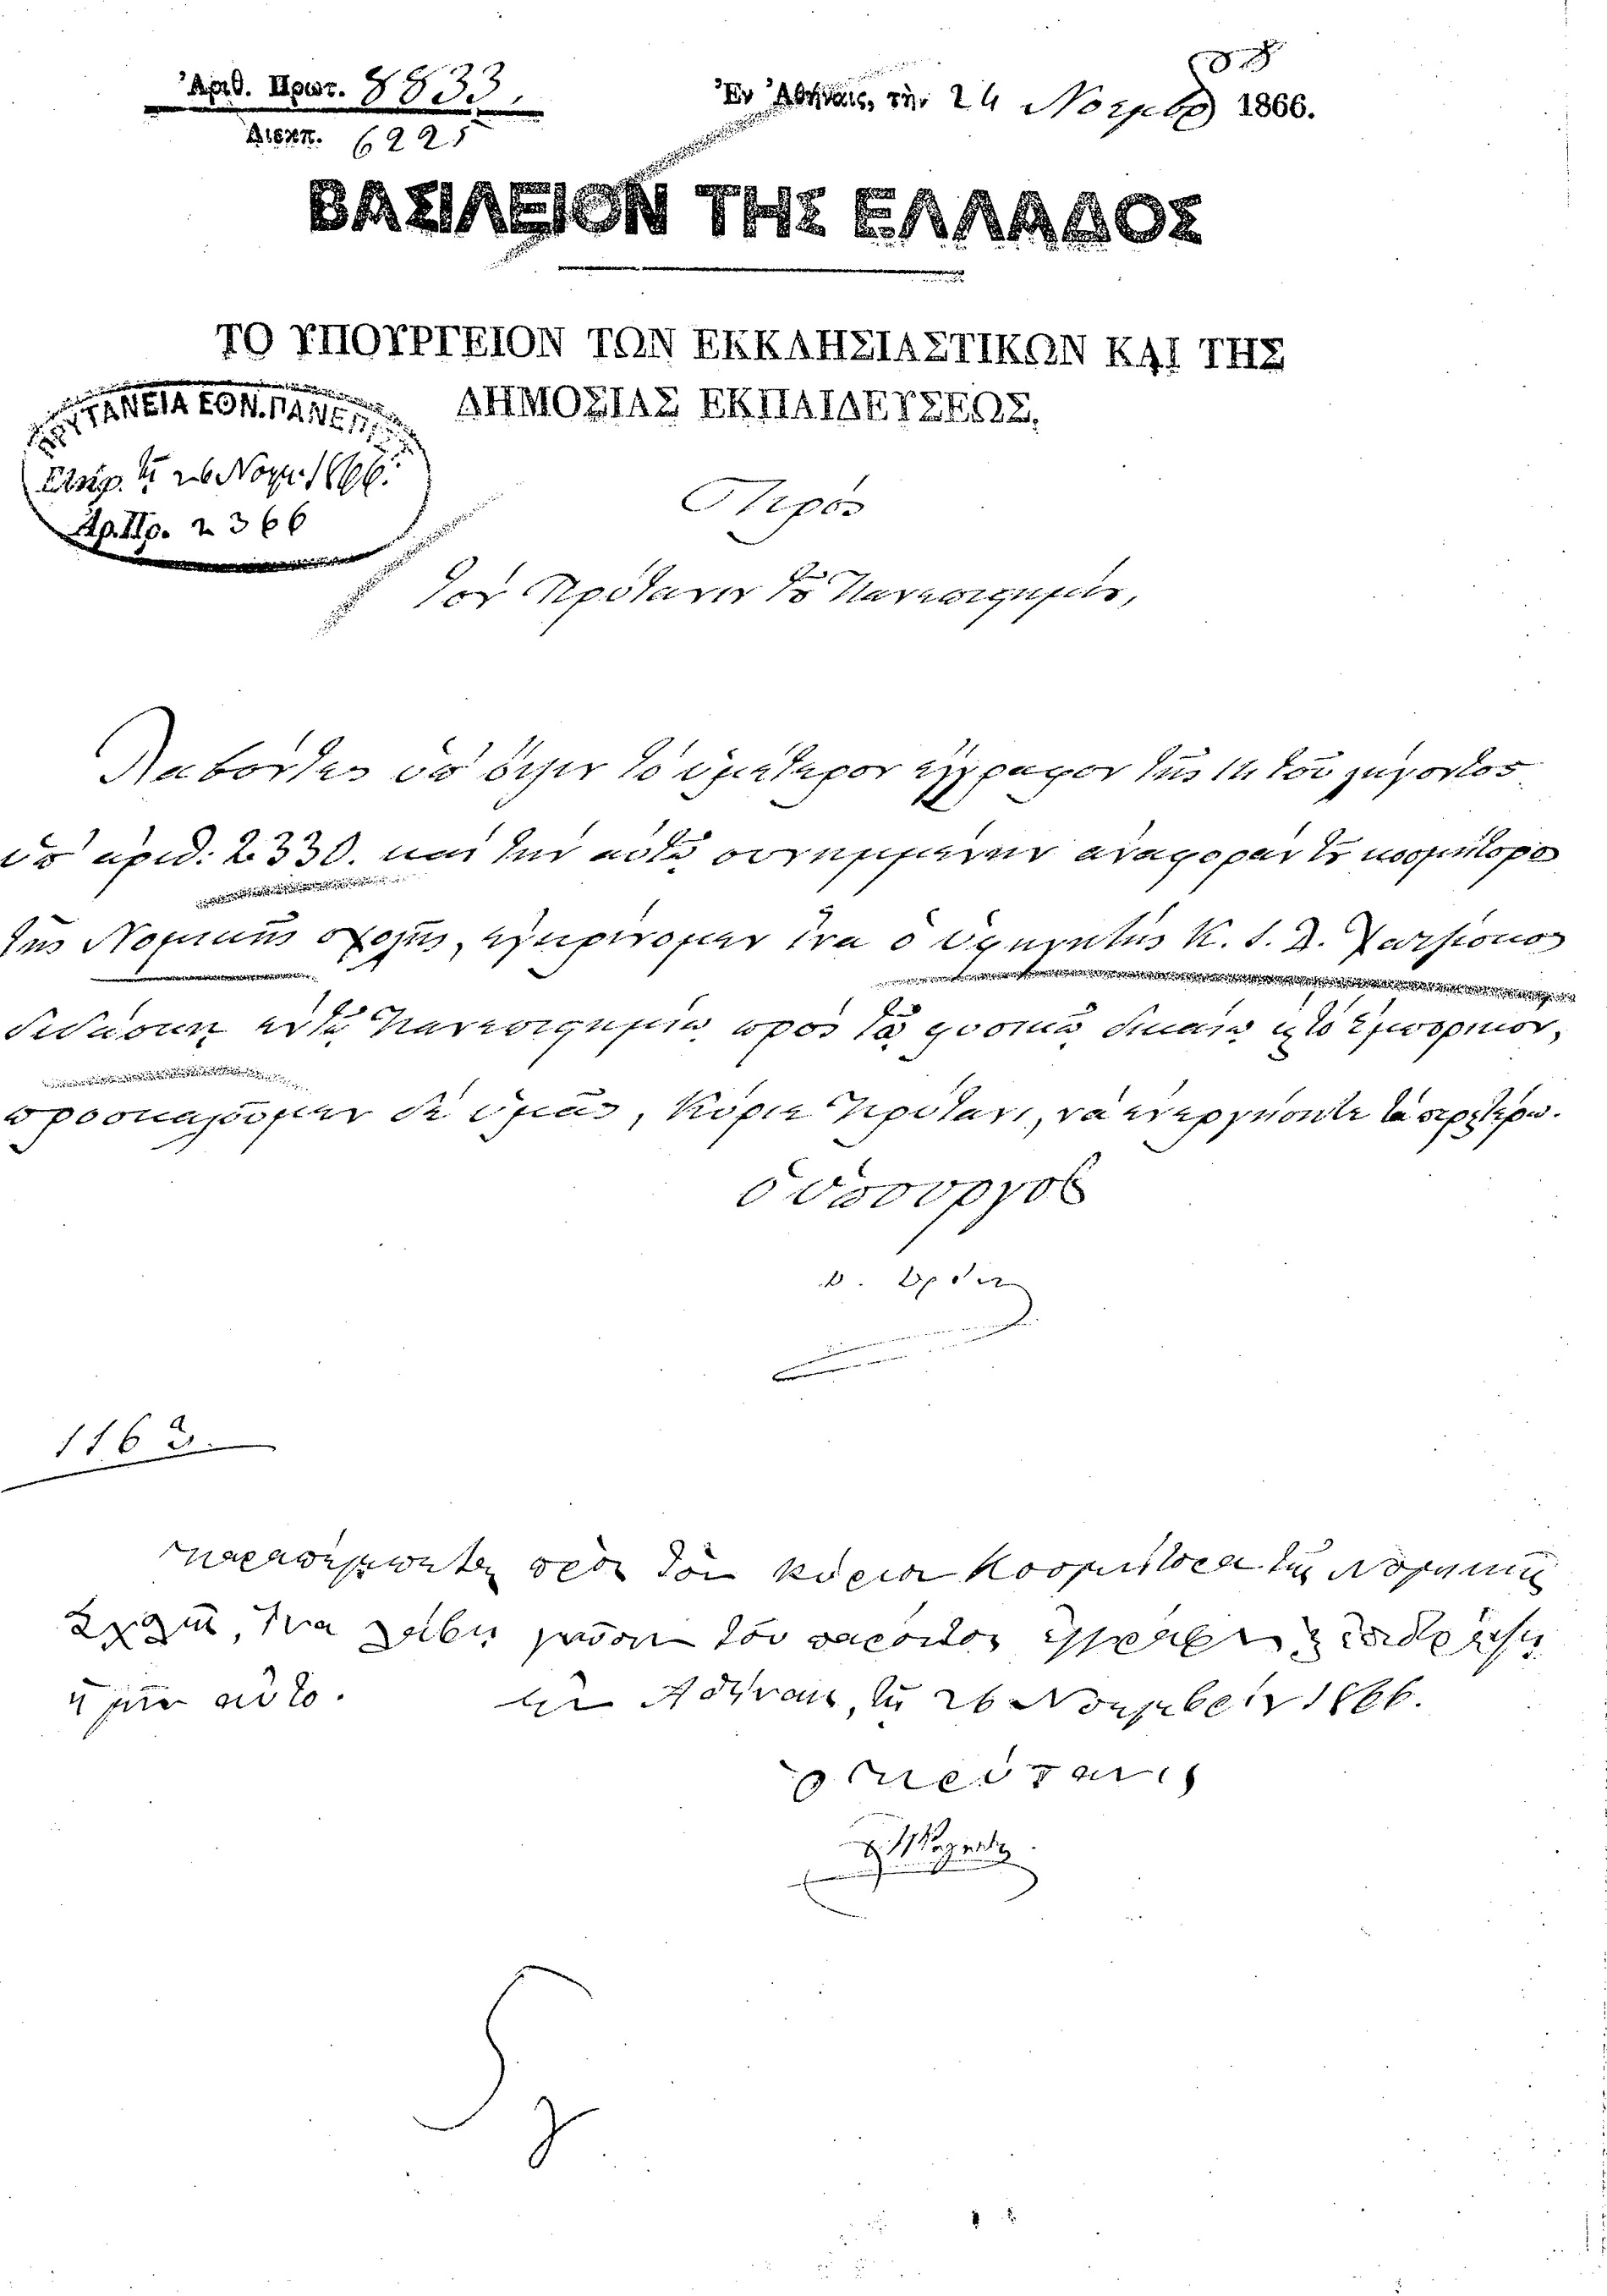 88
Ἀριθ. Πρωτ. 8833.
Διεκπ. 6225
Ἐν Ἀθήναις, τῇ 24 Νοεμβρ 1866.
ΒΑΣΙΛΕΙΟΝ ΤΗΣ ΕΛΛΑΔΟΣ
ΤΟ ΥΠΟΥΡΓΕΙΟΝ ΤΩΝ ΕΚΚΛΗΣΙΑΣΤΙΚΩΝ ΚΑΙ ΤΗΣ
ΔΗΜΟΣΙΑΣ ΕΚΠΑΙΔΕΥΣΕΩΣ.
ΠΡΥΤΑΝΕΙΑ ΕΘΝ. ΠΑΝΕΠΙΣΤ
Ἐλήφ. τῇ 26 Νοεμ. 1866.
Ἀρ. Πρ. 2366
Πρὸς
Τὸν Πρύτανιν τοῦ Πανεπιστημίου,
Λαβόντες ὑπ' ὄψιν τὸ ὑμέτερον ἔγγραφον τῆς 14 τοῦ λήγοντος
ὑπ' ἀριθ: 2330. καὶ τὴν αὐτῷ συνημμένην ἀναφορὰν τοῦ κοσμήτορος
τῆς Νομικῆς σχολῆς, ἐγκρίνομεν ἵνα ὁ ὑφηγητὴς Κ. Ι. Δ. Τσιβανόπουλος
διδάσκῃ ἐν τῷ Πανεπιστημίῳ πρὸς τῷ φυσικῷ δικαίῳ κ τὸ ἐμπορικὸν,
προσκαλοῦμεν δὲ ὑμᾶς, Κύριε Πρύτανι, νὰ ἐνεργήσητε τὰ περαιτέρω.
ὁ ὑπουργὸς
1163.
Παραπέμπεται πρὸς τὸν κύριον Κοσμήτορα τῆς Νομικῆς
Σχολῆς, ἵνα λάβῃ γνῶσιν τοῦ παρόντος ἐγγράφου κ ἐπιστρέψῃ
ἡμῖν αὐτό. Ἐν Ἀθήναις, τῇ 26 Νοεμβρίου 1866.
ὁ Πρύτανις